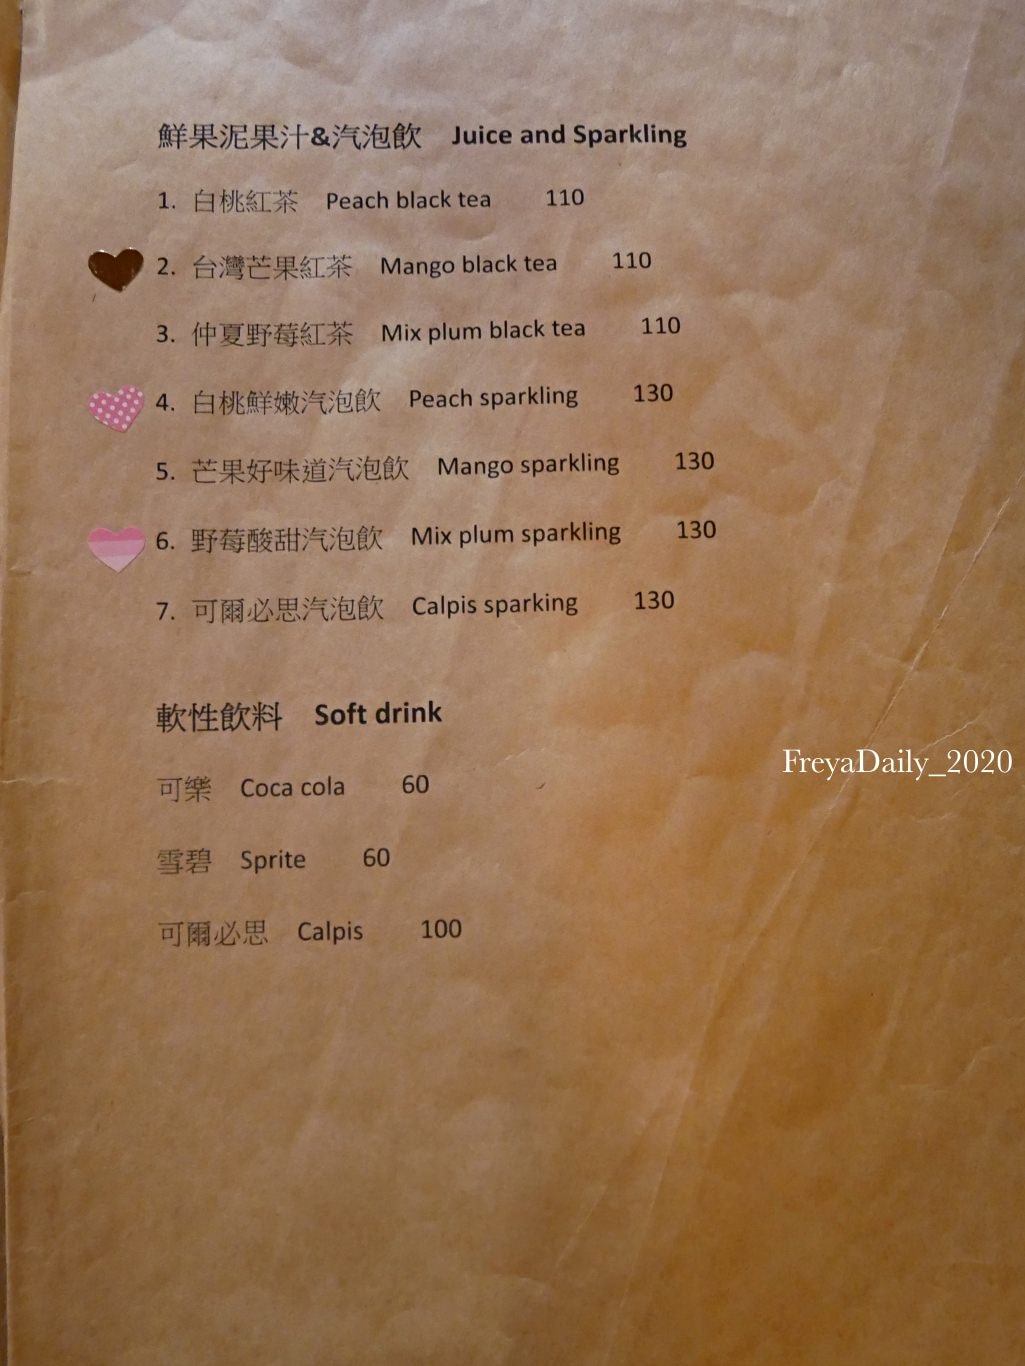 鮮果泥果汁&汽泡飲 Juice and Sparkling
1. 白桃紅茶 Peach black tea 110
2. 台灣芒果紅茶 Mango black tea 110
3. 仲夏野莓紅茶 Mix plum black tea 110
4. 白桃鮮嫩汽泡飲 Peach sparkling 130
5. 芒果好味道汽泡飲 Mango sparkling 130
6. 野莓酸甜汽泡飲 Mix plum sparkling 130
7. 可爾必思汽泡飲 Calpis sparking 130
軟性飲料 Soft drink
FreyaDaily_2020
可樂 Coca cola 60
雪碧 Sprite 60
可爾必思 Calpis 100